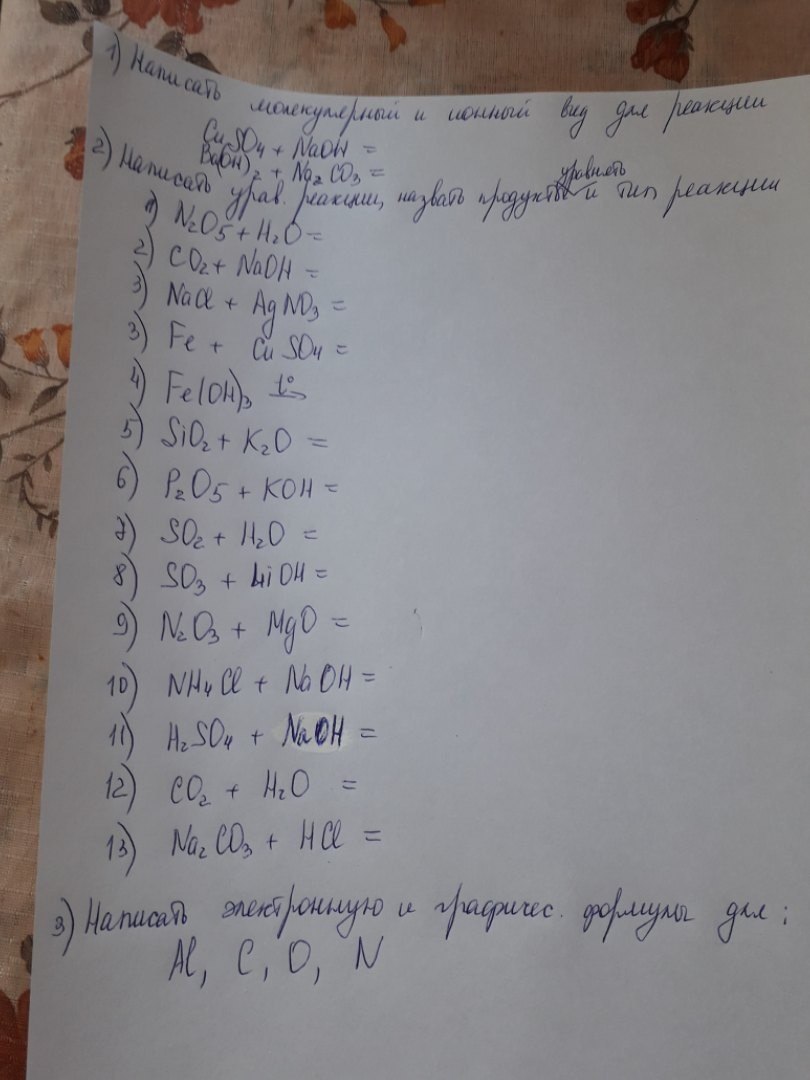 1) Написать молекулярный и ионный вид для реакции
CuSO₄ + NaOH =
Ba(OH)₂ + Na₂CO₃ =
уравнять
2) Написать урав. реакции, назвать продукты и тип реакции
1) N₂O₅ + H₂O =
2) CO₂ + NaOH =
3) NaCl + AgNO₃ =
3) Fe + CuSO₄ =
4) Fe(OH)₃ t° →
5) SiO₂ + K₂O =
6) P₂O₅ + KOH =
7) SO₂ + H₂O =
8) SO₃ + LiOH =
9) N₂O₃ + MgO =
10) NH₄Cl + NaOH =
11) H₂SO₄ + NaOH =
12) CO₂ + H₂O =
13) Na₂CO₃ + HCl =
3) Написать электронную и графичес. формулы для:
Al, C, O, N